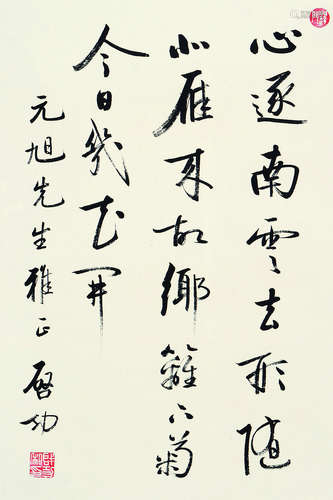 心逐南雲去形隨
北雁来故鄉籬下菊
今日幾花開
元旭先生雅正 啓功